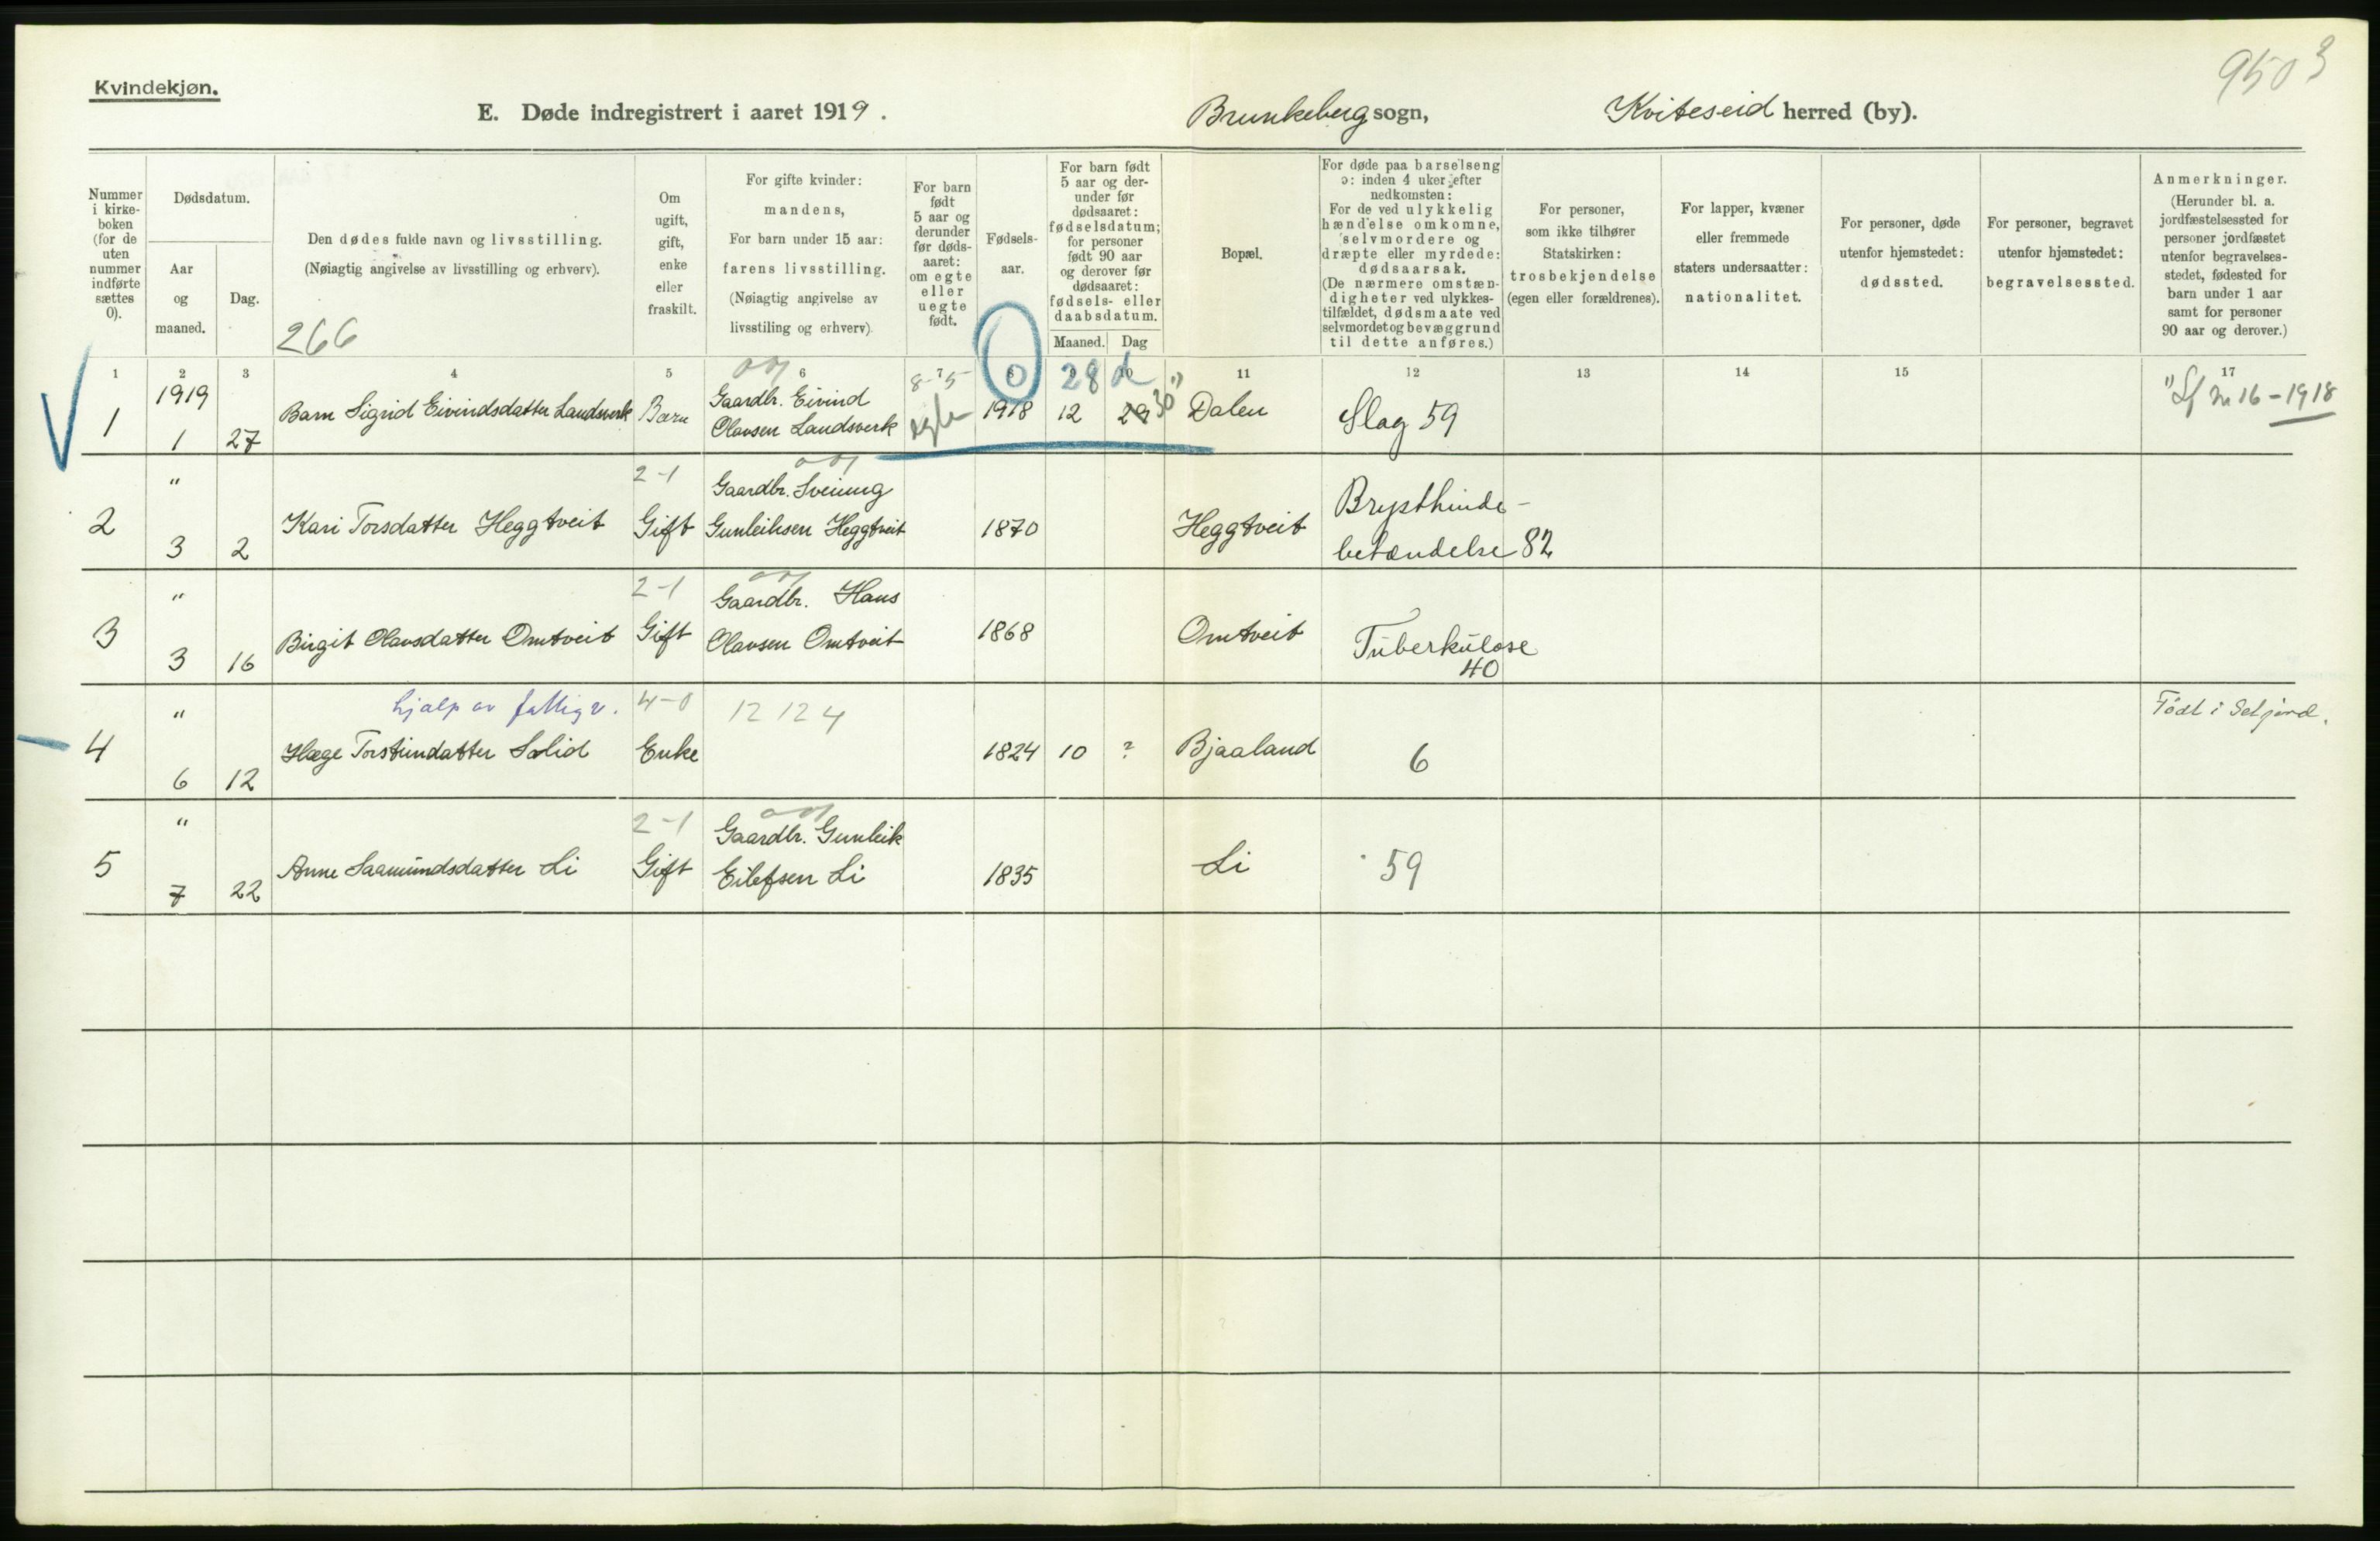 9503
Kvindekjøn.
E. Døde indregistrert i aaret 1919.
Brunkeberg sogn,
Kviteseid herred (by).
Nummer
i kirke-
boken
(for de
uten
nummer
indførte
sættes
0).
Dødsdatum.
Aar
og
maaned.
Dag.
Den dødes fulde navn og livsstilling.
(Nøiagtig angivelse av livsstilling og erhverv).
266
Om
ugift,
gift,
enke
eller
fraskilt.
For gifte kvinder:
mandens,
For barn under 15 aar:
farens livsstilling.
(Nøiagtig angivelse av
livsstiling og erhverv)
For barn
født
5 aar og
derunder
før døds-
aaret:
om egte
eller
uegte
født.
Fødsels-
aar.
For barn født
5 aar og der-
under før
dødsaaret:
fødselsdatum;
for personer
født 90 aar
og derover før
dødsaaret:
fødsels- eller
daabsdatum.
Maaned. Dag
Bopæl.
For døde paa barselseng
ɔ: inden 4 uker efter
nedkomsten:
For de ved ulykkelig
hændelse omkomne,
selvmordere og
dræpte eller myrdede:
dødsaarsak.
(De nærmere omstæn-
digheter ved ulykkes-
tilfældet, dødsmaate ved
selvmordet og bevæggrund
til dette anføres.)
For personer,
som ikke tilhører
Statskirken:
trosbekjendelse
(egen eller forældrenes).
For lapper, kvæner
eller fremmede
staters undersaatter:
nationalitet.
For personer, døde
utenfor hjemstedet:
dødssted.
For personer, begravet
utenfor hjemstedet:
begravelsessted.
Anmerkninger.
(Herunder bl. a.
jordfæstelsessted for
personer jordfæstet
utenfor begravelses-
stedet, fødested for
barn under 1 aar
samt for personer
90 aar og derover.)
1 2 3 4 5 6 7 8 9 10 11 12 13 14 15 17
8-5 0 28 d
1919
1 1 27 Barn Sigrid Eivindsdatter Landsverk Barn
Gaardbr. Eivind
Olavsen Landsverk
egte 1918 12 29 30 Dalen Slag 59
nr 16-1918
"
2 3 2 Kari Torsdatter Heggtveit
2-1
Gift
Gaardbr. Sveinung
Gunleiksen Heggtveit
1870 Heggtveit
Brysthinde-
betændelse 82
"
3 3 16 Birgit Olavsdatter Omtveit
2-1
Gift
Gaardbr. Hans
Olavsen Omtveit
1868 Omtveit Tuberkulose
40
"
hjælp av fattigv.
4 6 12 Hæge Torsteindatter Solid
4-0
Enke
12 12 4
1824 10 ? Bjaaland 6
Født i Seljord.
"
5 7 22 Anne Saamundsdatter Li
2-1
Gift
Gaardbr. Gunleik
Eilefsen Li
1835 Li 59